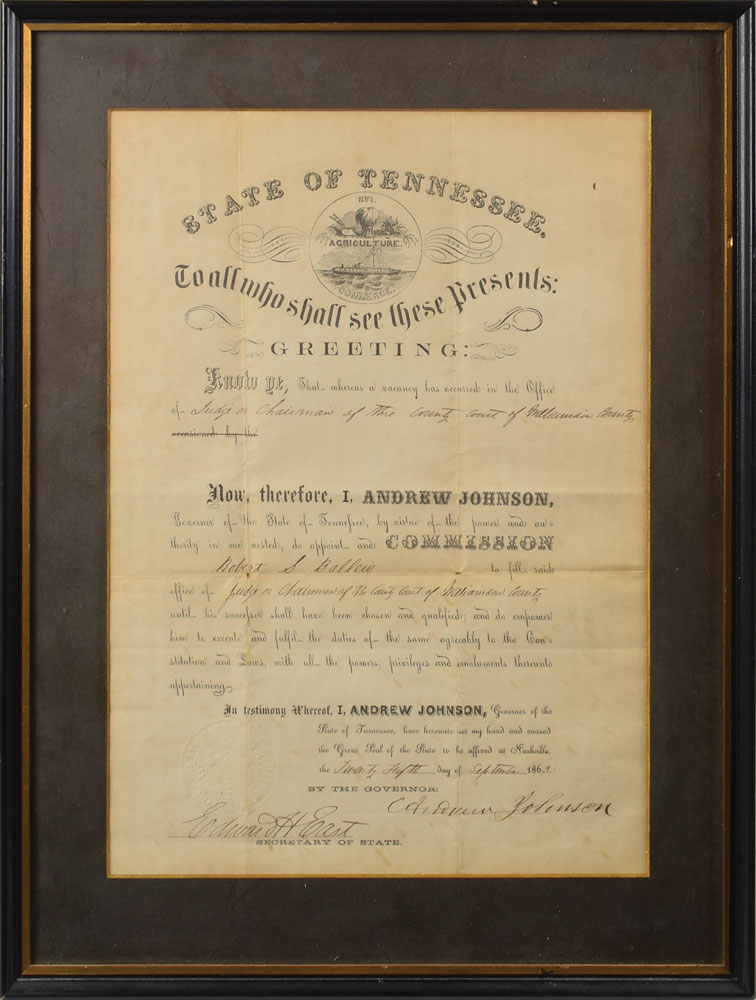 STATE OF TENNESSEE.
XVI.
AGRICULTURE.
COMMERCE.
To all who shall see these Presents:
GREETING:
Know ye, That whereas a vacancy has occurred in the Office
of Judge or Chairman of the County Court of Williamson County
occasioned by the
Now, therefore, I, ANDREW JOHNSON,
Governor of the State of Tennessee, by virtue of the power and au-
thority in me vested, do appoint and COMMISSION
Robert S Ballew to fill said
office of Judge or Chairman of the County Court of Williamson County
until his successor shall have been chosen and qualified; and do empower
him to execute and fulfil the duties of the same agreeably to the Con-
stitution and Laws, with all the powers, privileges and emoluments thereunto
appertaining.
In testimony Whereof, I, ANDREW JOHNSON, Governor of the
State of Tennessee, have hereunto set my hand and caused
the Great Seal of the State to be affixed at Nashville,
the Twenty fifth day of September 186
BY THE GOVERNOR:
Andrew Johnson
Edward H East
SECRETARY OF STATE.